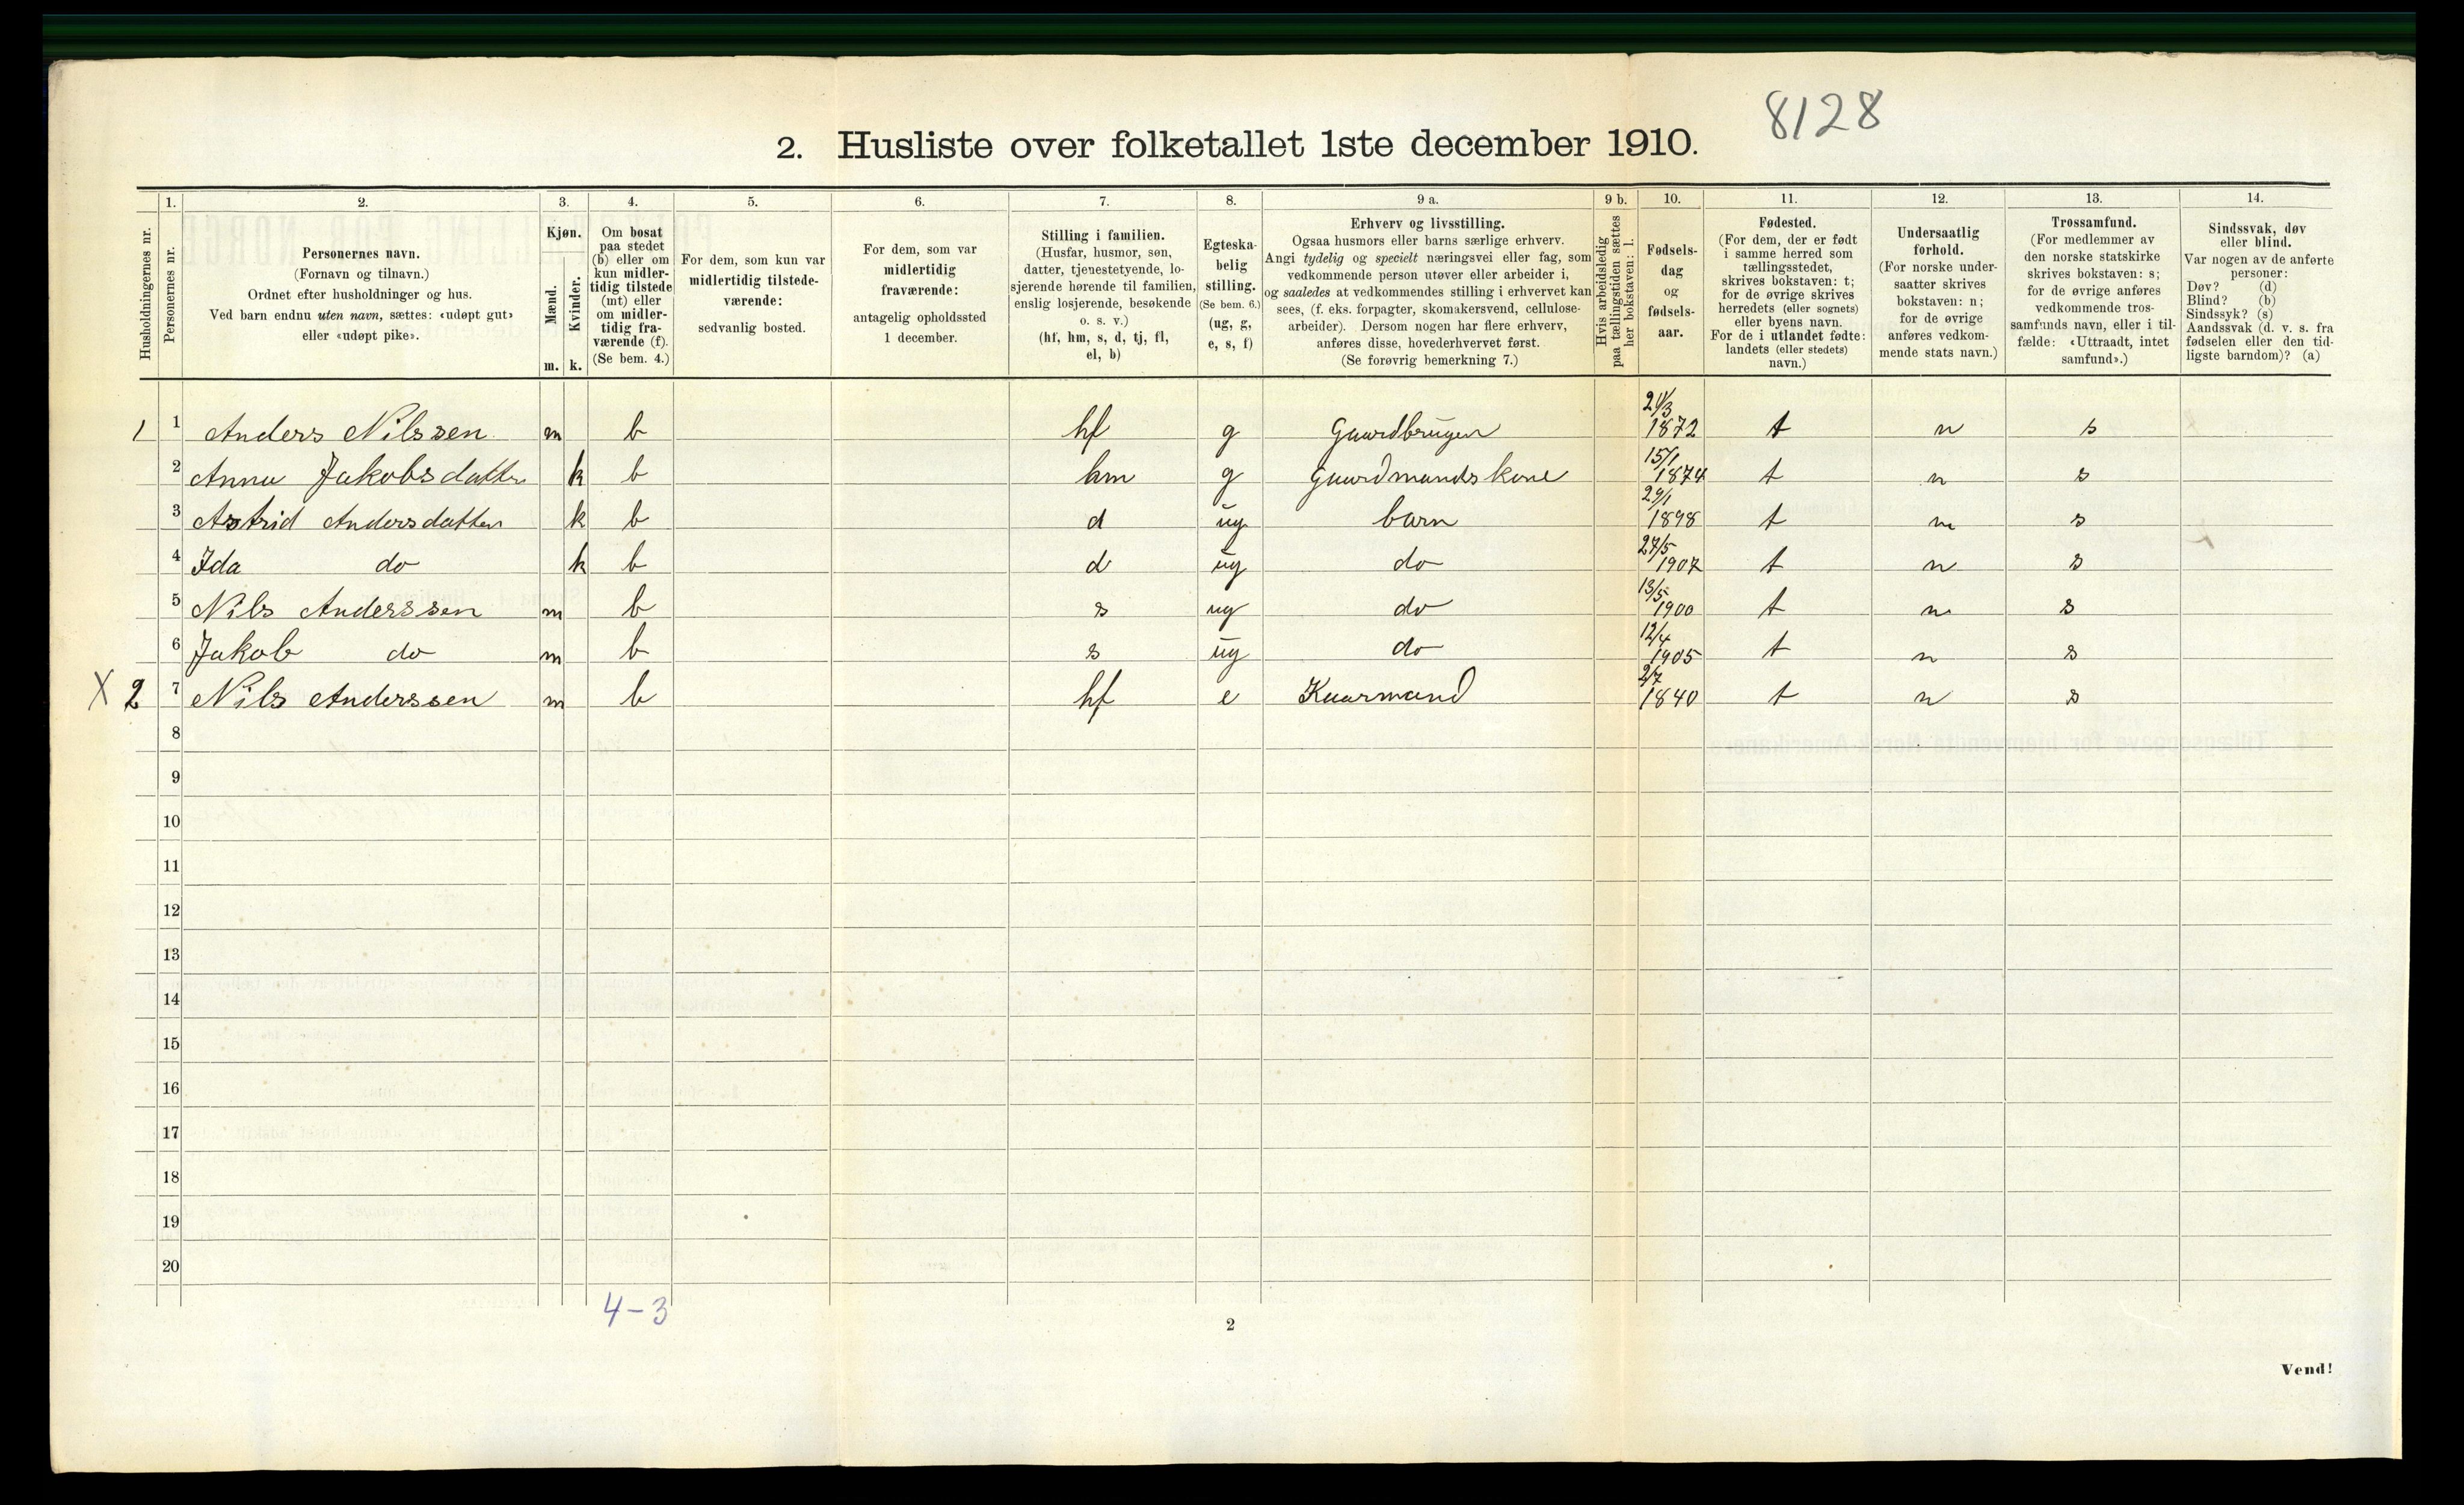 8128
2. Husliste over folketallet 1ste december 1910.
1. 2. 3. 4. 5. 6. 7. 8. 9 a. 9 b. 10. 11. 12. 13. 14.
Husholdningernes nr.
Personernes nr.
Personernes navn.
(Fornavn og tilnavn.)
Ordnet efter husholdninger og hus.
Ved barn endnu uten navn, sættes: «udøpt gut»
eller «udøpt pike».
Kjøn.
Mænd.
Kvinder.
m. k.
Om bosat
paa stedet
(b) eller om
kun midler-
tidig tilstede
(mt) eller
om midler-
tidig fra-
værende (f).
(Se bem. 4.)
For dem, som kun var
midlertidig tilstede-
værende:
sedvanlig bosted.
For dem, som var
midlertidig
fraværende:
antagelig opholdssted
1 december.
Stilling i familien.
(Husfar, husmor, søn,
datter, tjenestetyende, lo-
sjerende hørende til familien,
enslig losjerende, besøkende
o. s. v.)
(hf, hm, s, d, tj, fl,
el, b)
Egteska-
belig
stilling.
(Se bem. 6.)
(ug, g,
e, s, f)
Erhverv og livsstilling.
Ogsaa husmors eller barns særlige erhverv.
Angi tydelig og specielt næringsvei eller fag, som
vedkommende person utøver eller arbeider i,
og saaledes at vedkommendes stilling i erhvervet kan
sees, (f. eks. forpagter, skomakersvend, cellulose-
arbeider). Dersom nogen har flere erhverv,
anføres disse, hovederhvervet først.
(Se forøvrig bemerkning 7.)
Hvis arbeidsledig
paa tællingstiden sættes
her bokstaven: l.
Fødsels-
dag
og
fødsels-
aar.
Fødested.
(For dem, der er født
i samme herred som
tællingsstedet,
skrives bokstaven: t;
for de øvrige skrives
herredets (eller sognets)
eller byens navn.
For de i utlandet fødte:
landets (eller stedets)
navn.)
Undersaatlig
forhold.
(For norske under-
saatter skrives
bokstaven: n;
for de øvrige
anføres vedkom-
mende stats navn.)
Trossamfund.
(For medlemmer av
den norske statskirke
skrives bokstaven: s;
for de øvrige anføres
vedkommende tros-
samfunds navn, eller i til-
fælde: «Uttraadt, intet
samfund».)
Sindssvak, døv
eller blind.
Var nogen av de anførte
personer:
Døv? (d)
Blind? (b)
Sindssyk? (s)
Aandssvak (d. v. s. fra
fødselen eller den tid-
ligste barndom)? (a)
1 1 Anders Nilssen m b hf g Gaardbruger 1872 t n s
2 Anna Jakobsdatter k b hm g Gaardmandskone 15/1 1874 t n s
3 Astrid Andersdatter k b d ug barn 29/1 1898 t n s
4 Ida do k b d ug do 27/5 1907 t n s
5 Nils Anderssen m b s ug do 13/5 1900 t n s
6 Jakob do m b s ug do 12/4 1905 t n s
X 2 7 Nils Anderssen m b hf e Kaarmand 2/7 1840 t n s
8
9
10
11
12
13
14
15
16
17
18
19
20
4-3
2
Vend!